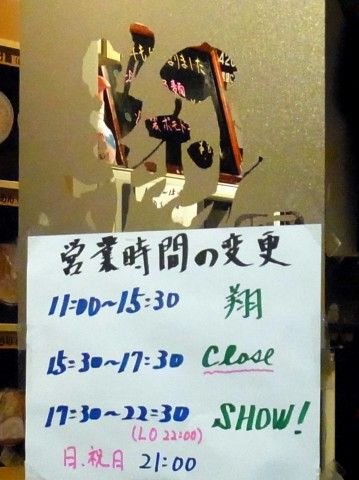 りました
420
麺
営業時間の変更
11:00~15:30 翔
15:30~17:30 Close
17:30~22:30 SHOW!
(LO 22:00)
日.祝日 21:00